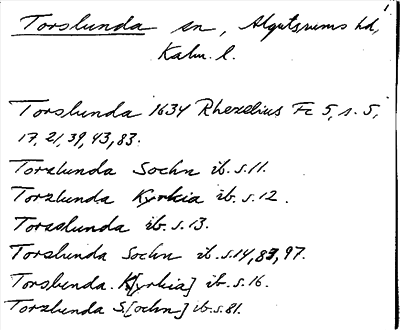 1
Torslunda sn, Algutsrums hd,
Kalm. l.
Torslunda 1634 Rhezelius Fc 5, s. 5,
17, 21, 39, 43, 83.
Torslunda Sochn ib. s. 11.
Torslunda Kyrkia ib. s. 12.
Torsslunda ib. s. 13.
Torslunda Sochn ib. s. 14, 87, 97.
Torslunda K[yrkia] ib. s. 16.
Torslunda S[ochn] ib. s. 81.